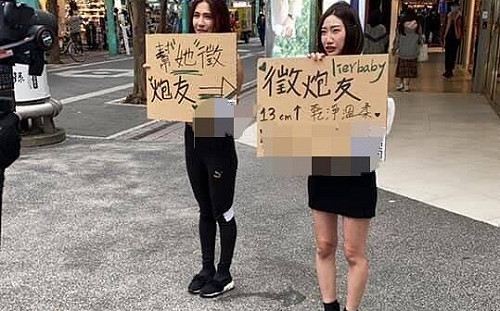 幫"她"徵
炮友
徵炮友
lierbaby
13cm↑ 乾淨溫柔